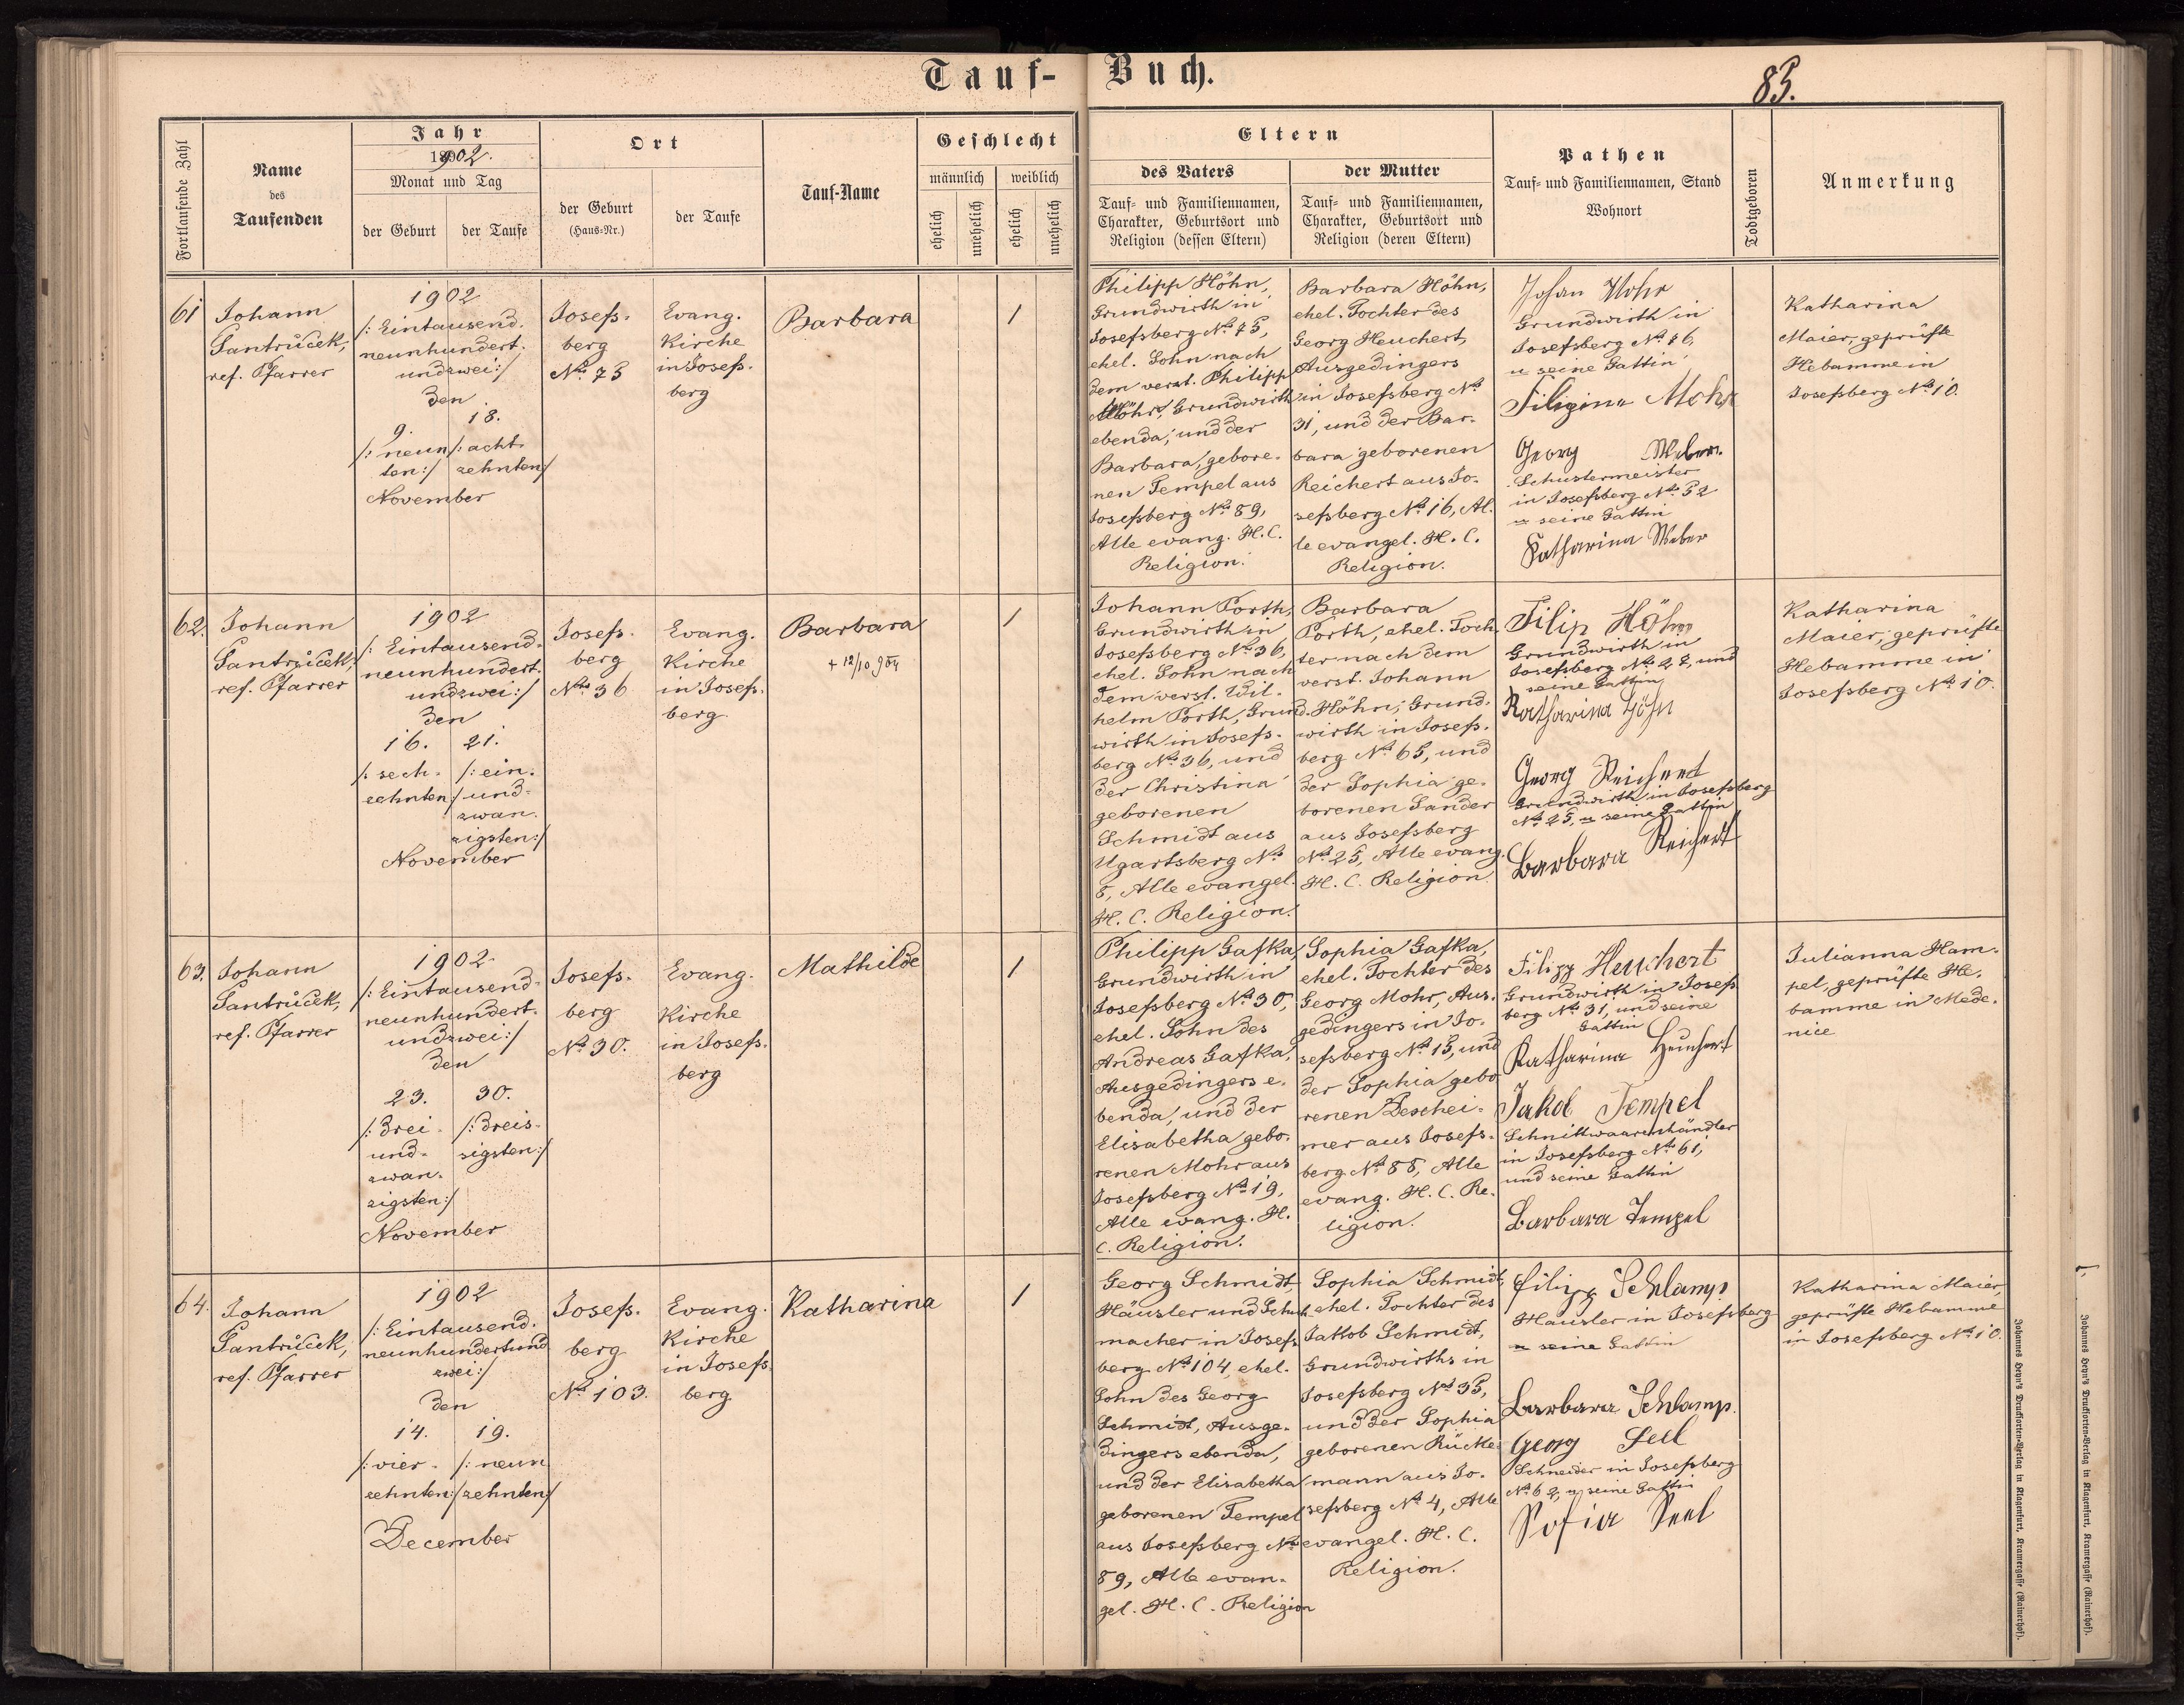 Tauf-Buch.
85.
Fortlaufende Zahl
Name
des
Taufenden
Jahr
1902.
Monat und Tag
der Geburt
der Taufe
Ort
der Geburt
(Haus-Nr.)
der Taufe
Tauf-Name
Geschlecht
männlich
weiblich
ehelich
unehelich
ehelich
unehelich
Eltern
des Vaters
Tauf- und Familiennamen,
Charakter, Geburtsort und
Religion (dessen Eltern)
der Mutter
Tauf- und Familiennamen,
Charakter, Geburtsort und
Religion (deren Eltern)
Pathen
Tauf- und Familiennamen, Stand
Wohnort
Todtgeboren
Anmerkung
61
Johann
Santrůček,
ref. Pfarrer
1902
/: Eintausend-
neunhundert-
undzwei :/
den
9.
/: neun
ten :/
18.
/: acht-
zehnten :/
November
Josefs-
berg
No. 75
Evang.
Kirche
in Josefs-
berg
Barbara
1
Philipp Höhn,
Grundwirth in
Josefsberg No. 75,
ehel. Sohn nach
dem verst. Philipp
Höhn, Grundwirth
ebenda, und der
Barbara, gebore-
nen Tempel aus
Josefsberg No. 89,
Alle evang. H. C.
Religion.
Barbara Höhn,
ehel. Tochter des
Georg Heuchert,
Ausgedingers
in Josefsberg No.
31, und der Bar-
bara geborenen
Reichert aus Jo-
sefsberg No. 16, Al-
le evangel. H. C.
Religion.
Johan Mohr
Grundwirth in
Josefsberg No. 86,
u seine Gattin
Filipina Mohr
Georg Weber
Schustermeister
in Josefsberg No. 52
u seine Gattin
Katharina Weber
Katharina
Maier, geprüfte
Hebamme in
Josefsberg No. 10.
62.
Johann
Santrůček,
ref. Pfarrer
1902
/: Eintausend-
neunhundert-
undzwei :/
den
16.
/: sech-
zehnten :/
21.
/: ein-
und-
zwan-
zigsten :/
November
Josefs-
berg
No. 36
Evang.
Kirche
in Josefs-
berg
Barbara
+ 12/10 904
1
Johann Porth,
Grundwirth in
Josefsberg No. 36,
ehel. Sohn nach
dem verst. Wil-
helm Porth, Grund-
wirth in Josefs-
berg No. 36, und
der Christina
geborenen
Schmidt aus
Ugartsberg No.
8, Alle evangel.
H. C. Religion.
Barbara
Porth, ehel. Toch-
ter nach dem
verst. Johann
Höhn, Grund-
wirth in Josefs-
berg No. 65, und
der Sophia ge-
borenen Sander
aus Josefsberg
No. 25, Alle evang.
H. C. Religion.
Filip Höhn
Grundwirth in
Josefsberg No. 22, und
seine Gattin
Katharina Höhn
Georg Reichert
Grundwirth in Josefsberg
No. 25, u seine Gattin
Barbara Reichert
Katharina
Maier, geprüfte
Hebamme in
Josefsberg No. 10.
63.
Johann
Santrůček,
ref. Pfarrer
1902
/: Eintausend-
neunhundert-
undzwei :/
den
23.
/: drei-
und-
zwan-
zigsten :/
30.
/: dreis-
sigsten :/
November
Josefs-
berg
No. 30.
Evang.
Kirche
in Josefs-
berg
Mathilde
1
Philipp Gafka,
Grundwirth in
Josefsberg No. 30,
ehel. Sohn des
Andreas Gafka,
Ausgedingers e-
benda, und der
Elisabetha gebo-
renen Mohr aus
Josefsberg No. 19,
Alle evang. H.
C. Religion.
Sophia Gafka,
ehel. Tochter des
Georg Mohr, Aus-
gedingers in Jo-
sefsberg No. 15, und
der Sophia gebo-
renen Deschei-
mer aus Josefs-
berg No. 88, Alle
evang. H. C. Re-
ligion.
Filipp Heuchert
Grundwirth in Josefs
berg No. 31, und seine
Gattin
Katharina Heuchert
Jakob Tempel
Schnittwaarenhändler
in Josefsberg No. 61,
und seine Gattin
Barbara Tempel
Julianna Ham-
pel, geprüfte He-
bamme in Mede-
nice
64.
Johann
Santrůček,
ref. Pfarrer
1902
/: Eintausend-
neunhundertund
zwei :/
den
14.
/: vier-
zehnten :/
19.
/: neun
zehnten :/
December
Josefs-
berg
No. 103.
Evang.
Kirche
in Josefs-
berg
Katharina
1
Georg Schmidt,
Häusler und Schuh-
macher in Josefs
berg No. 104, ehel.
Sohn des Georg
Schmidt, Ausge-
dingers ebenda,
und der Elisabetha
geborenen Tempel
aus Josefsberg No.
89, Alle evan-
gel. H. C. Religion
Sophia Schmidt,
ehel. Tochter des
Jakob Schmidt,
Grundwirths in
Josefsberg No. 35,
und der Sophia
geborenen Rückle-
mann aus Jo-
sefsberg No. 4, Alle
evangel. H. C.
Religion.
Filipp Schlamp
Häusler in Josefsberg
u seine Gattin
Barbara Schlamp.
Georg Seel
Schneider in Josefsberg
No. 62, u seine Gattin
Sofia Seel
Katharina Maier,
geprüfte Hebamme
in Josefsberg No. 10.
Johannes Heyn's Drucksorten-Verlag in Klagenfurt, Kramergasse (Rainerhof).
Johannes Heyn's Drucksorten-Verlag in Klagenfurt, Kramergasse (Rainerhof).